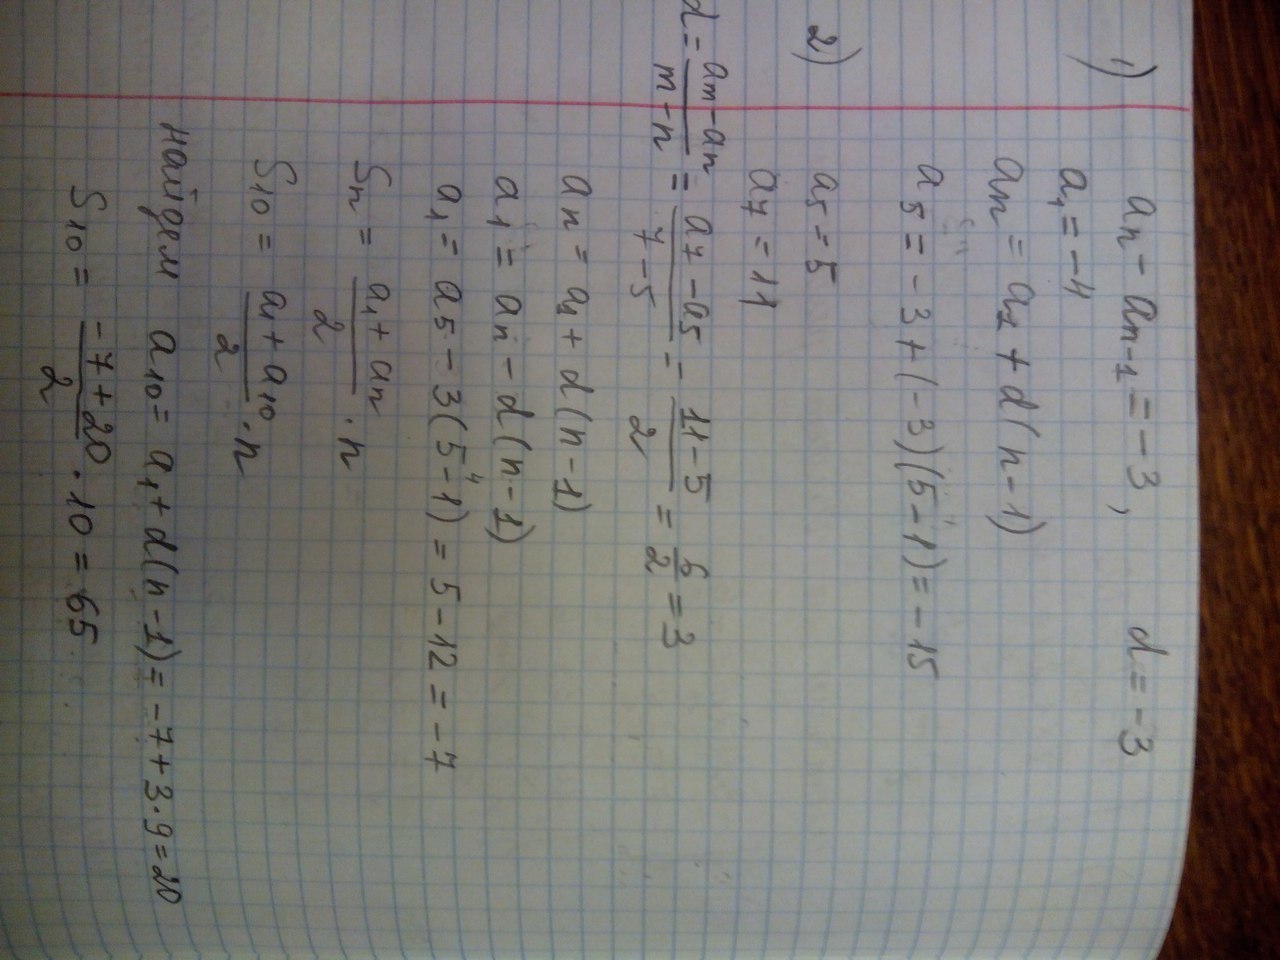 1) an - an-1 = -3, d = -3
a1 = -4
an = a1 + d(n-1)
a5 = -3 + (-3)(5-1) = -15
2) a5 = 5
a7 = 11
d = (am - an)/(m - n) = (a7 - a5)/(7 - 5) = (11 - 5)/2 = 6/2 = 3
an = a1 + d(n-1)
a1 = an - d(n-1)
a1 = a5 - 3(5-1) = 5 - 12 = -7
Sn = (a1 + an)/2 · n
S10 = (a1 + a10)/2 · n
Найдем a10 = a1 + d(n-1) = -7 + 3·9 = 20
S10 = (-7 + 20)/2 · 10 = 65